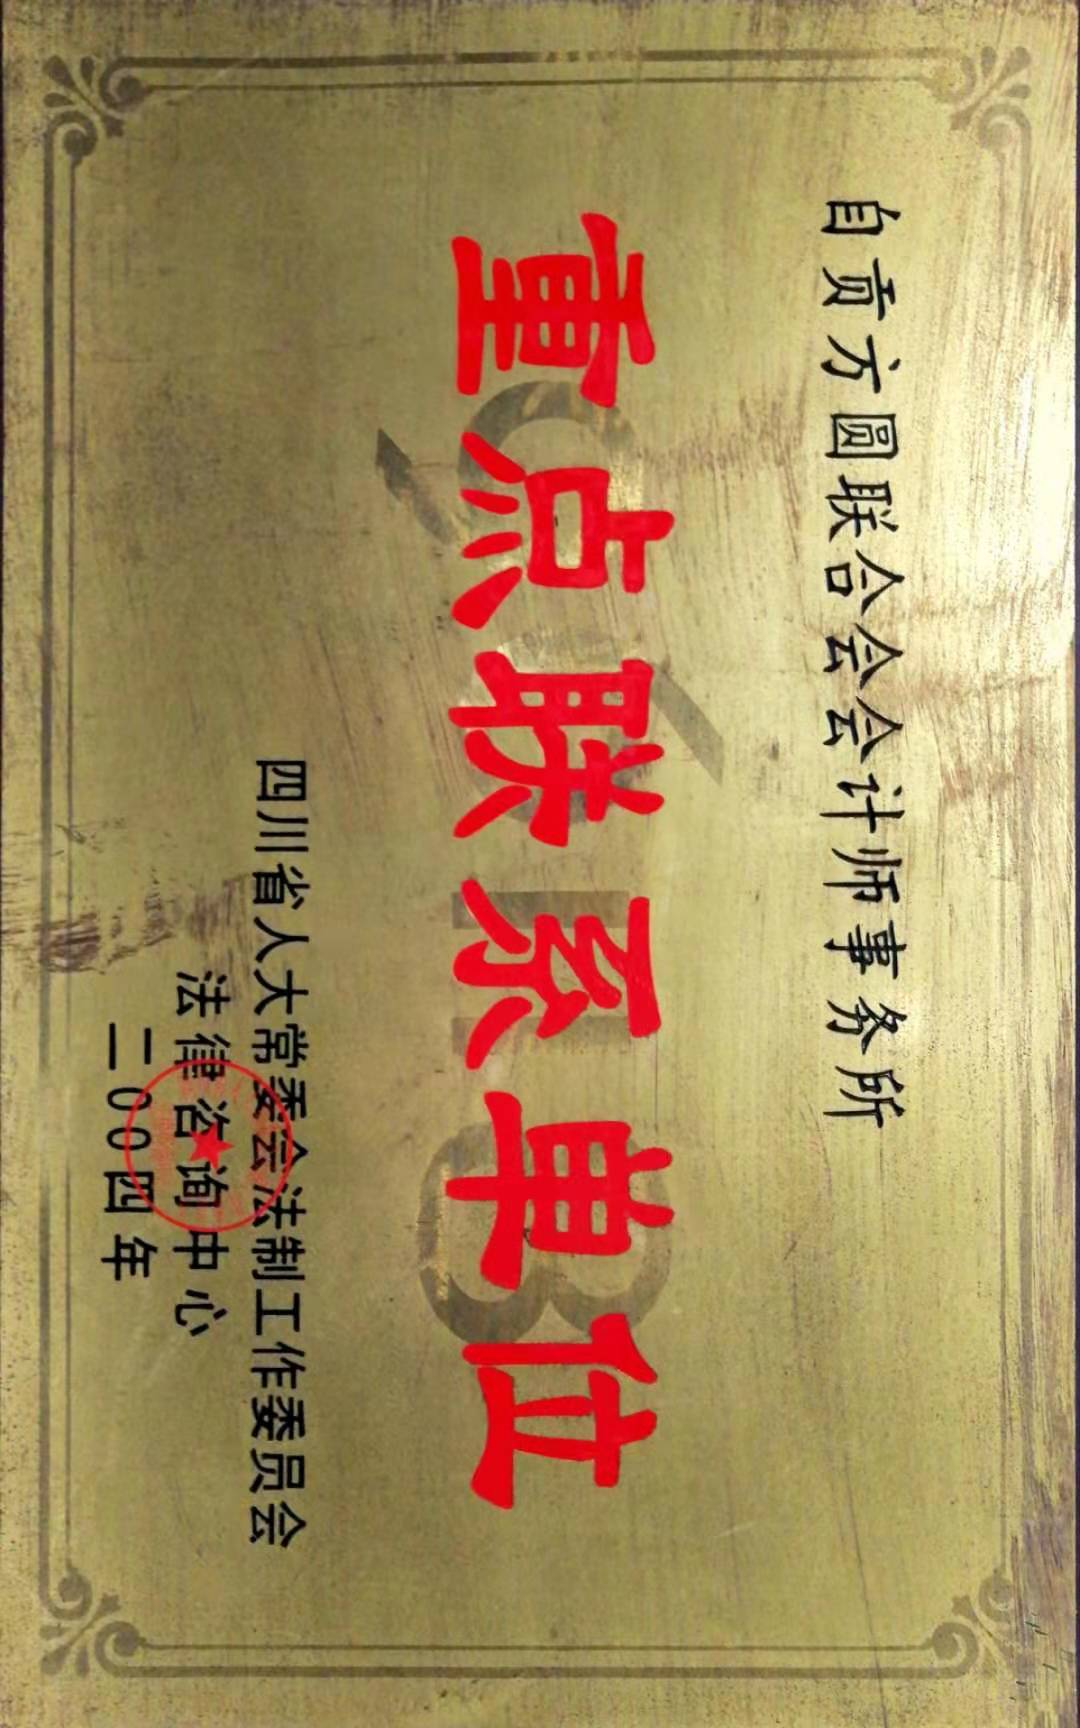 自贡方圆联合会会计师事务所
重点联系单位
四川省人大常委会法制工作委员会
法律咨询中心
二00四年